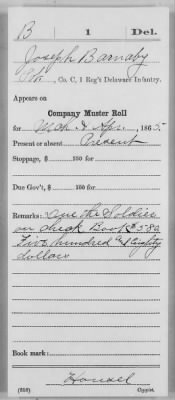 B | 1 | Del.
Joseph Barnaby
Pt., Co. C, 1 Reg't Delaware Infantry.
Appears on
Company Muster Roll
for Mch & Apr., 1865.
Present or absent Present
Stoppage, $ 100 for
Due Gov't, $ 100 for
Remarks: Due the Soldier
on check Book $580
Five hundred & Eighty
dollars
Book mark:
(858) Copyist.